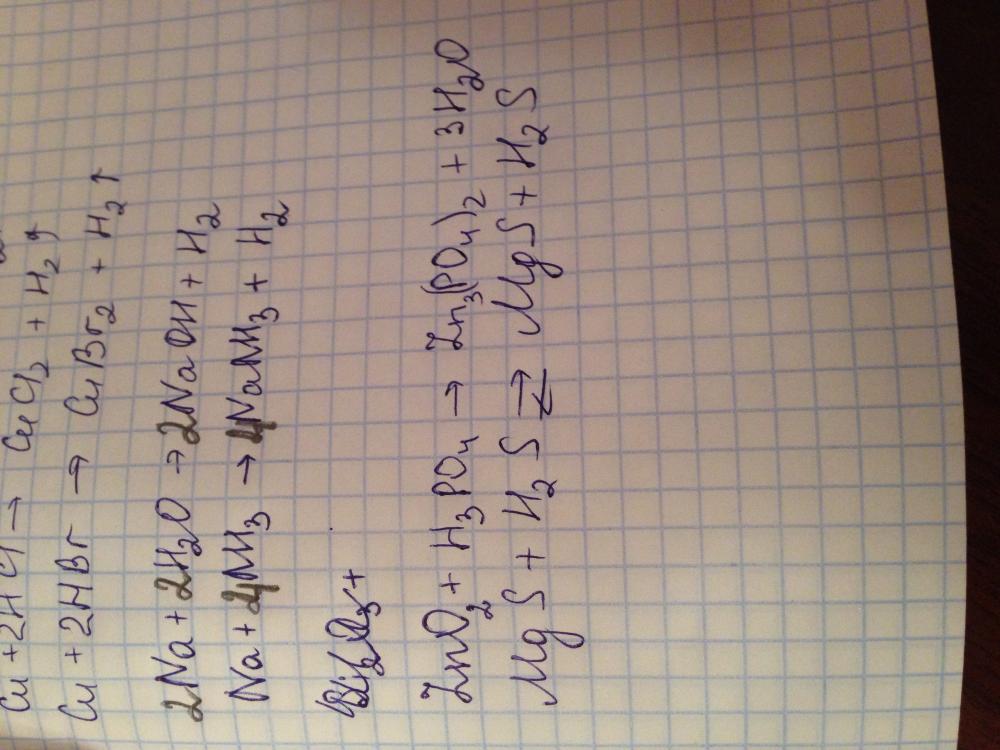 Cu + 2HCl → CuCl2 + H2 ↑
Cu + 2HBr → CuBr2 + H2 ↑
2Na + 2H2O → 2NaOH + H2
Na + NH3 → NaNH3 + H2
ZnO2 + H3PO4 → Zn3(PO4)2 + 3H2O
MgS + H2S ⇄ MgS + H2S